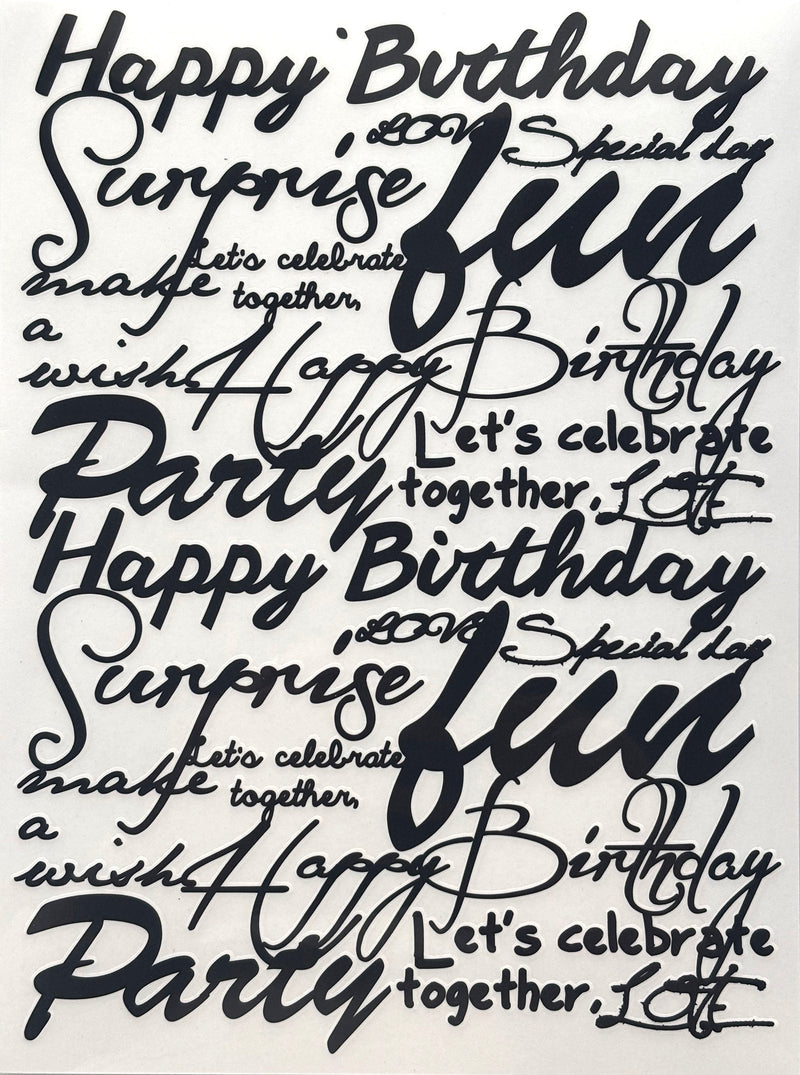 Happy Birthday
LOVE
Special day
Surprise
fun
Let's celebrate
together,
make
a
wish.
Happy Birthday
Party
Let's celebrate
together,
LOVE
Happy Birthday
LOVE
Special day
Surprise
fun
Let's celebrate
together,
make
a
wish.
Happy Birthday
Party
Let's celebrate
together,
LOVE